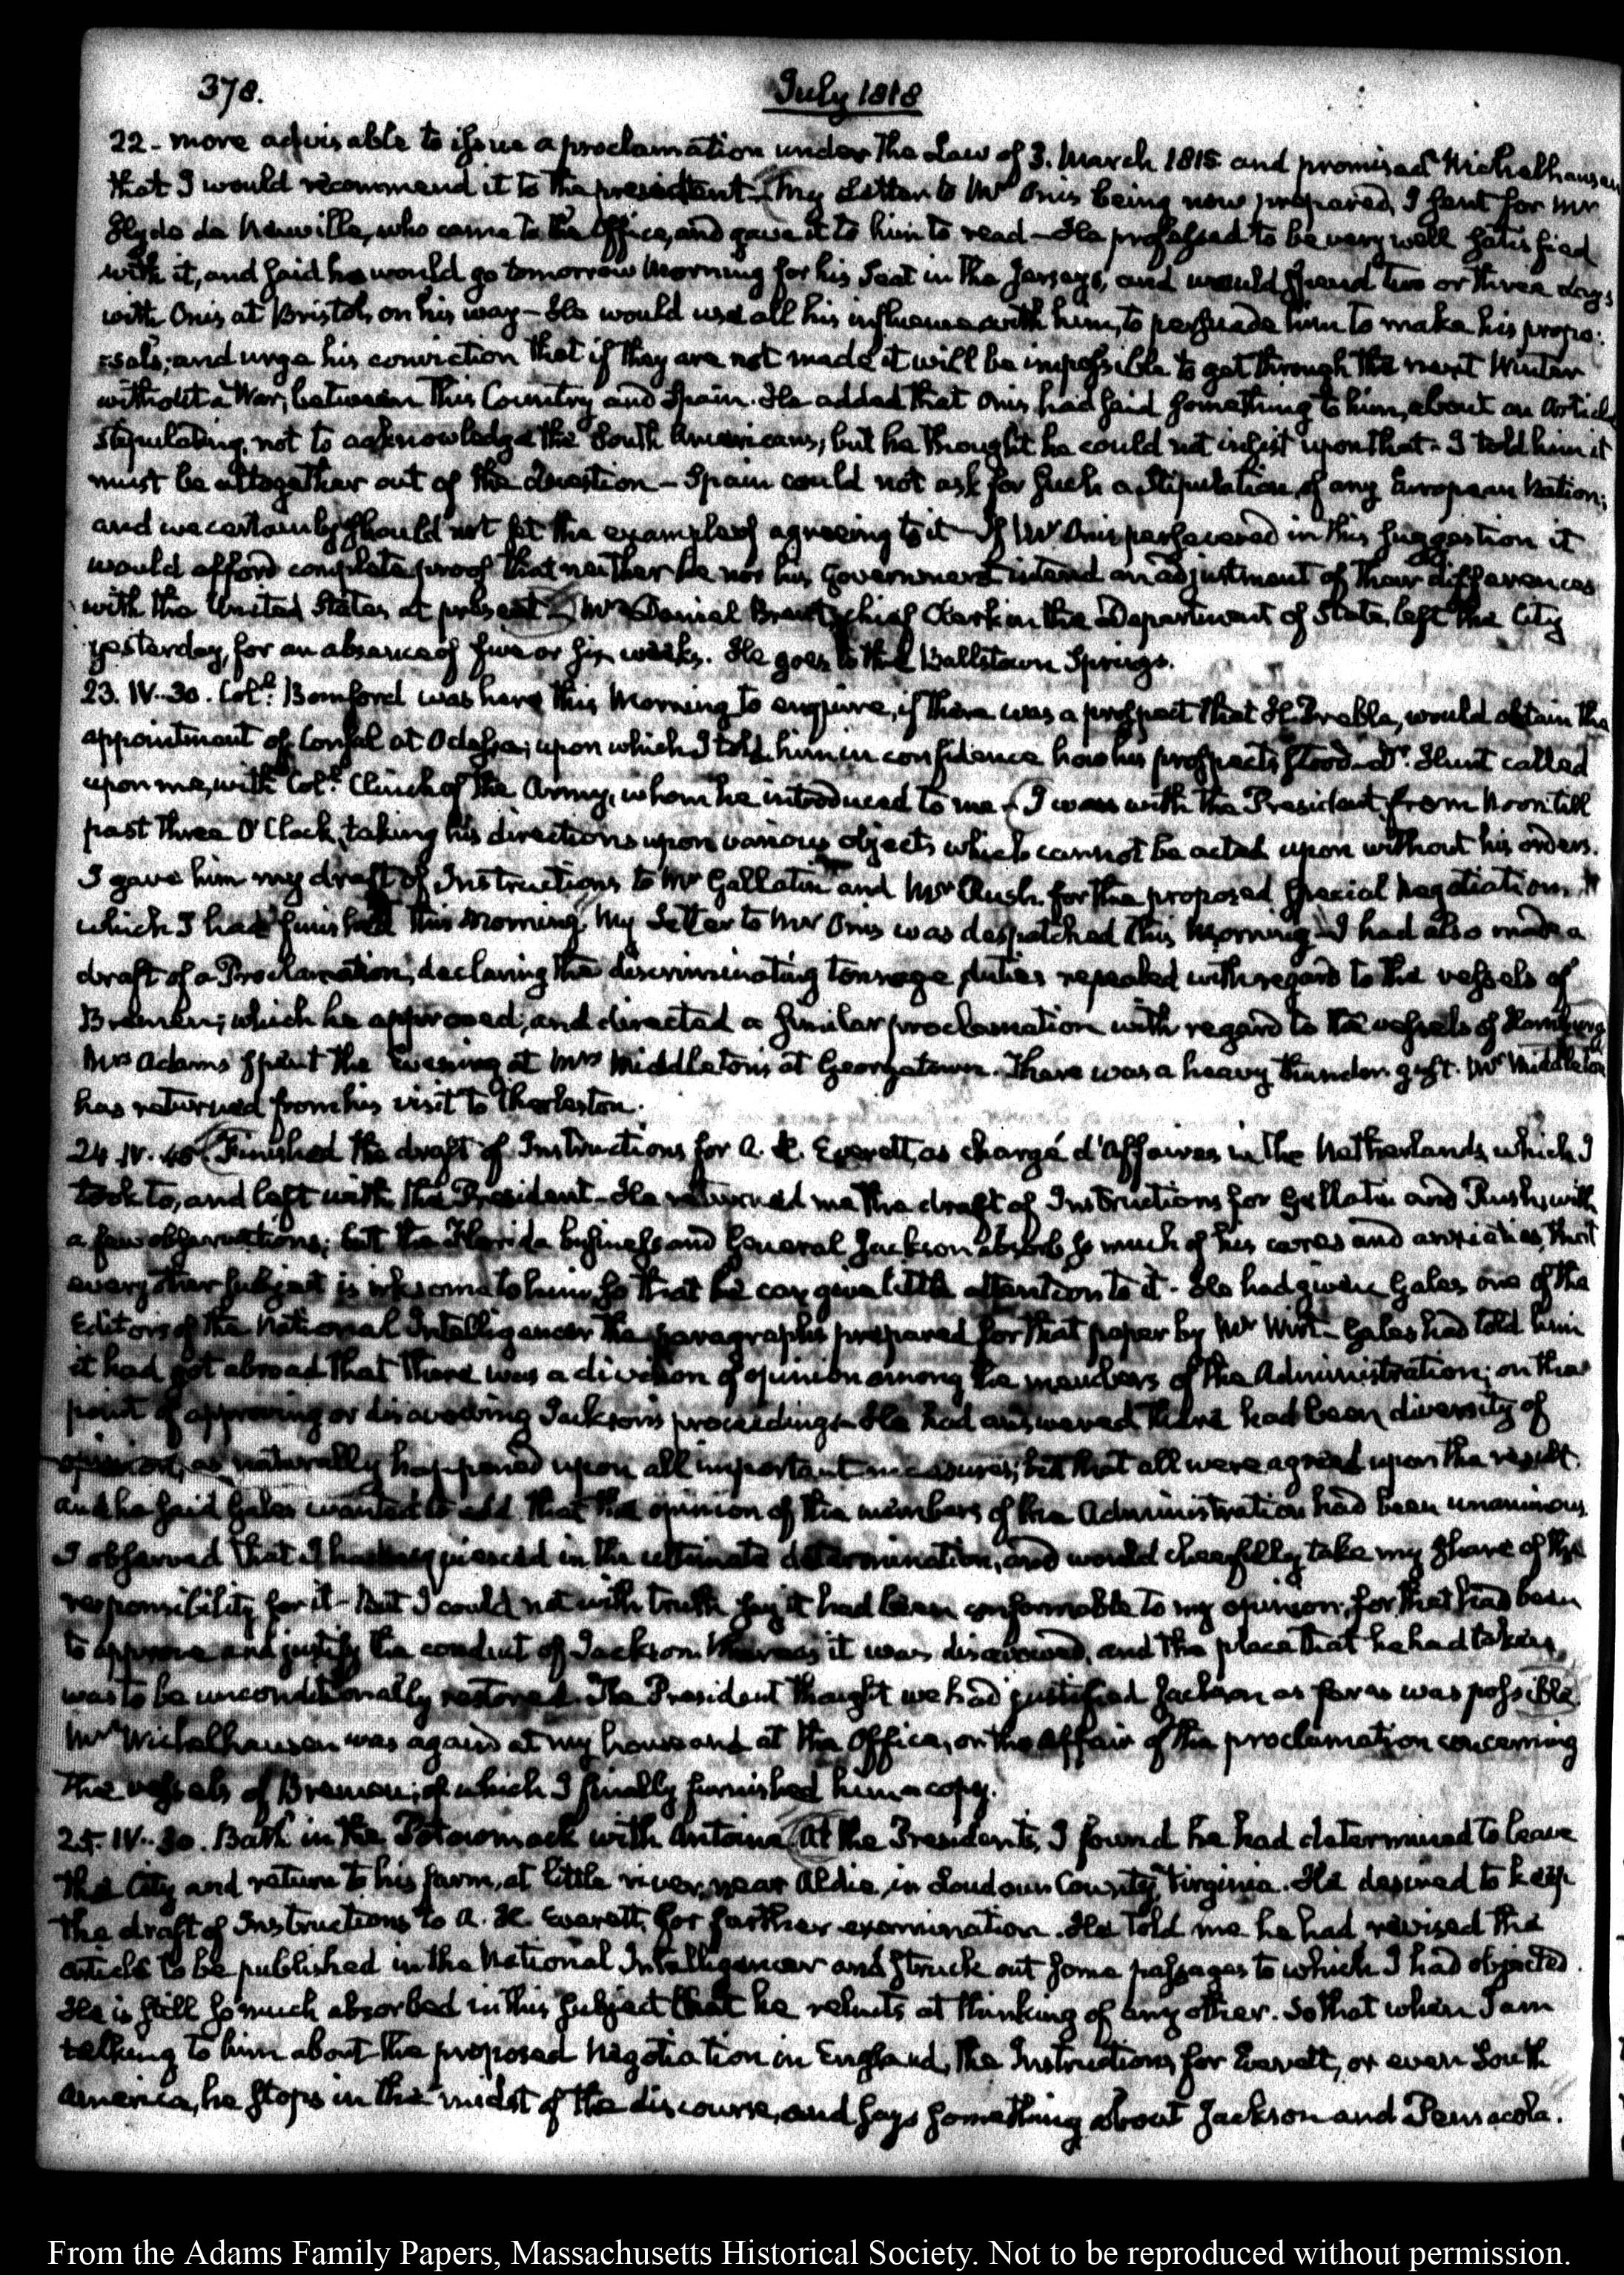 378.
July 1818
22 - more advisable to issue a proclamation under the Law of 3. March 1815 and promised Wichelhausen
that I would recommend it to the president - My Letter to Mr Onis being now prepared, I sent for Mr
Hyde de Neuville, who came to the Office, and gave it to him to read - He professed to be very well satisfied
with it, and said he would go tomorrow Morning for his Seat in the Jerseys, and would spend two or three days
with Onis at Bristol, on his way - He would use all his influence with him, to persuade him to make his propo:
:sals; and urge his conviction that if they are not made it will be impossible to get through the next Winter
without a War, between this Country and Spain. He added that Onis had said something to him, about an Article
stipulating, not to acknowledge the South Americans; but he thought he could not insist upon that - I told him it
must be altogether out of the Question - Spain could not ask for such a stipulation of any European Nation;
and we certainly should not set the example of agreeing to it - If Mr Onis persevered in this suggestion it
would afford complete proof that neither he nor his Government intend an adjustment of their differences
with the United States at present - Mr Daniel Brent, chief Clerk in the Department of State, left the City
yesterday, for an absence of five or six weeks. He goes to the Ballstown Springs.
23. IV..30. Coll. Bomford was here this Morning to enquire, if there was a prospect that H. Preble, would obtain the
appointment of Consul at Odessa; upon which I told him in confidence how his prospects stood - Dr. Hunt called
upon me, with Coll. Clinch of the Army, whom he introduced to me - I was with the President from Noon till
past three O'Clock, taking his directions upon various objects which cannot be acted upon without his orders.
I gave him my draft of Instructions to Mr Gallatin and Mr Rush for the proposed special Negotiation
which I had finished this Morning. My Letter to Mr Onis was despatched this Morning - I had also made a
draft of a Proclamation, declaring the discriminating tonnage duties repealed with regard to the vessels of
Bremen; which he approved; and directed a similar proclamation with regard to the vessels of Hamburg
Mrs Adams spent the Evening at Mrs Middleton's at Georgetown. There was a heavy thunder gust. Mr Middleton
has returned from his visit to Charleston.
24. IV..45 Finished the draft of Instructions for A. H. Everett, as chargé d'Affaires in the Netherlands, which I
took to, and left with the President - He returned me the draft of Instructions for Gallatin and Rush, with
a few observations; but the Florida business and General Jackson absorb so much of his cares and anxieties, that
every other subject is irksome to him, so that he can give little attention to it - He had given Gales one of the
Editors of the National Intelligencer the paragraphs prepared for that paper by Mr Wirt - Gales had told him
it had got abroad that there was a division of opinion among the members of the Administration; on the
point of approving or disavowing Jackson's proceedings - He had answered there had been diversity of
opinion, as naturally happened upon all important measures; but that all were agreed upon the result.
and he said Gales wanted to add that the opinion of the members of the Administration had been unanimous
I observed that I had acquiesced in the ultimate determination, and would cheerfully take my share of the
responsibility for it - But I could not with truth say it had been conformable to my opinion; for that had been
to approve and justify the conduct of Jackson. Whereas it was disavowed, and the place that he had taken,
was to be unconditionally restored. The President thought we had justified Jackson as far as was possible.
Mr Wichelhausen was again at my house and at the Office, on the affair of the proclamation concerning
the vessels of Bremen; of which I finally furnished him a copy.
25. IV..30. Bath in the Potowmack with Antoine. At the President's, I found he had determined to leave
the City and return to his farm, at little river, near Aldie, in Loudoun County, Virginia. He desired to keep
the draft of Instructions to A. H. Everett, for further examination. He told me he had revised the
article to be published in the National Intelligencer and struck out some passages to which I had objected.
He is still so much absorbed in this subject that he relucts at thinking of any other. So that when I am
talking to him about the proposed Negotiation in England, the Instructions for Everett, or even South
America, he stops in the midst of the discourse, and says something about Jackson and Pensacola.
From the Adams Family Papers, Massachusetts Historical Society. Not to be reproduced without permission.